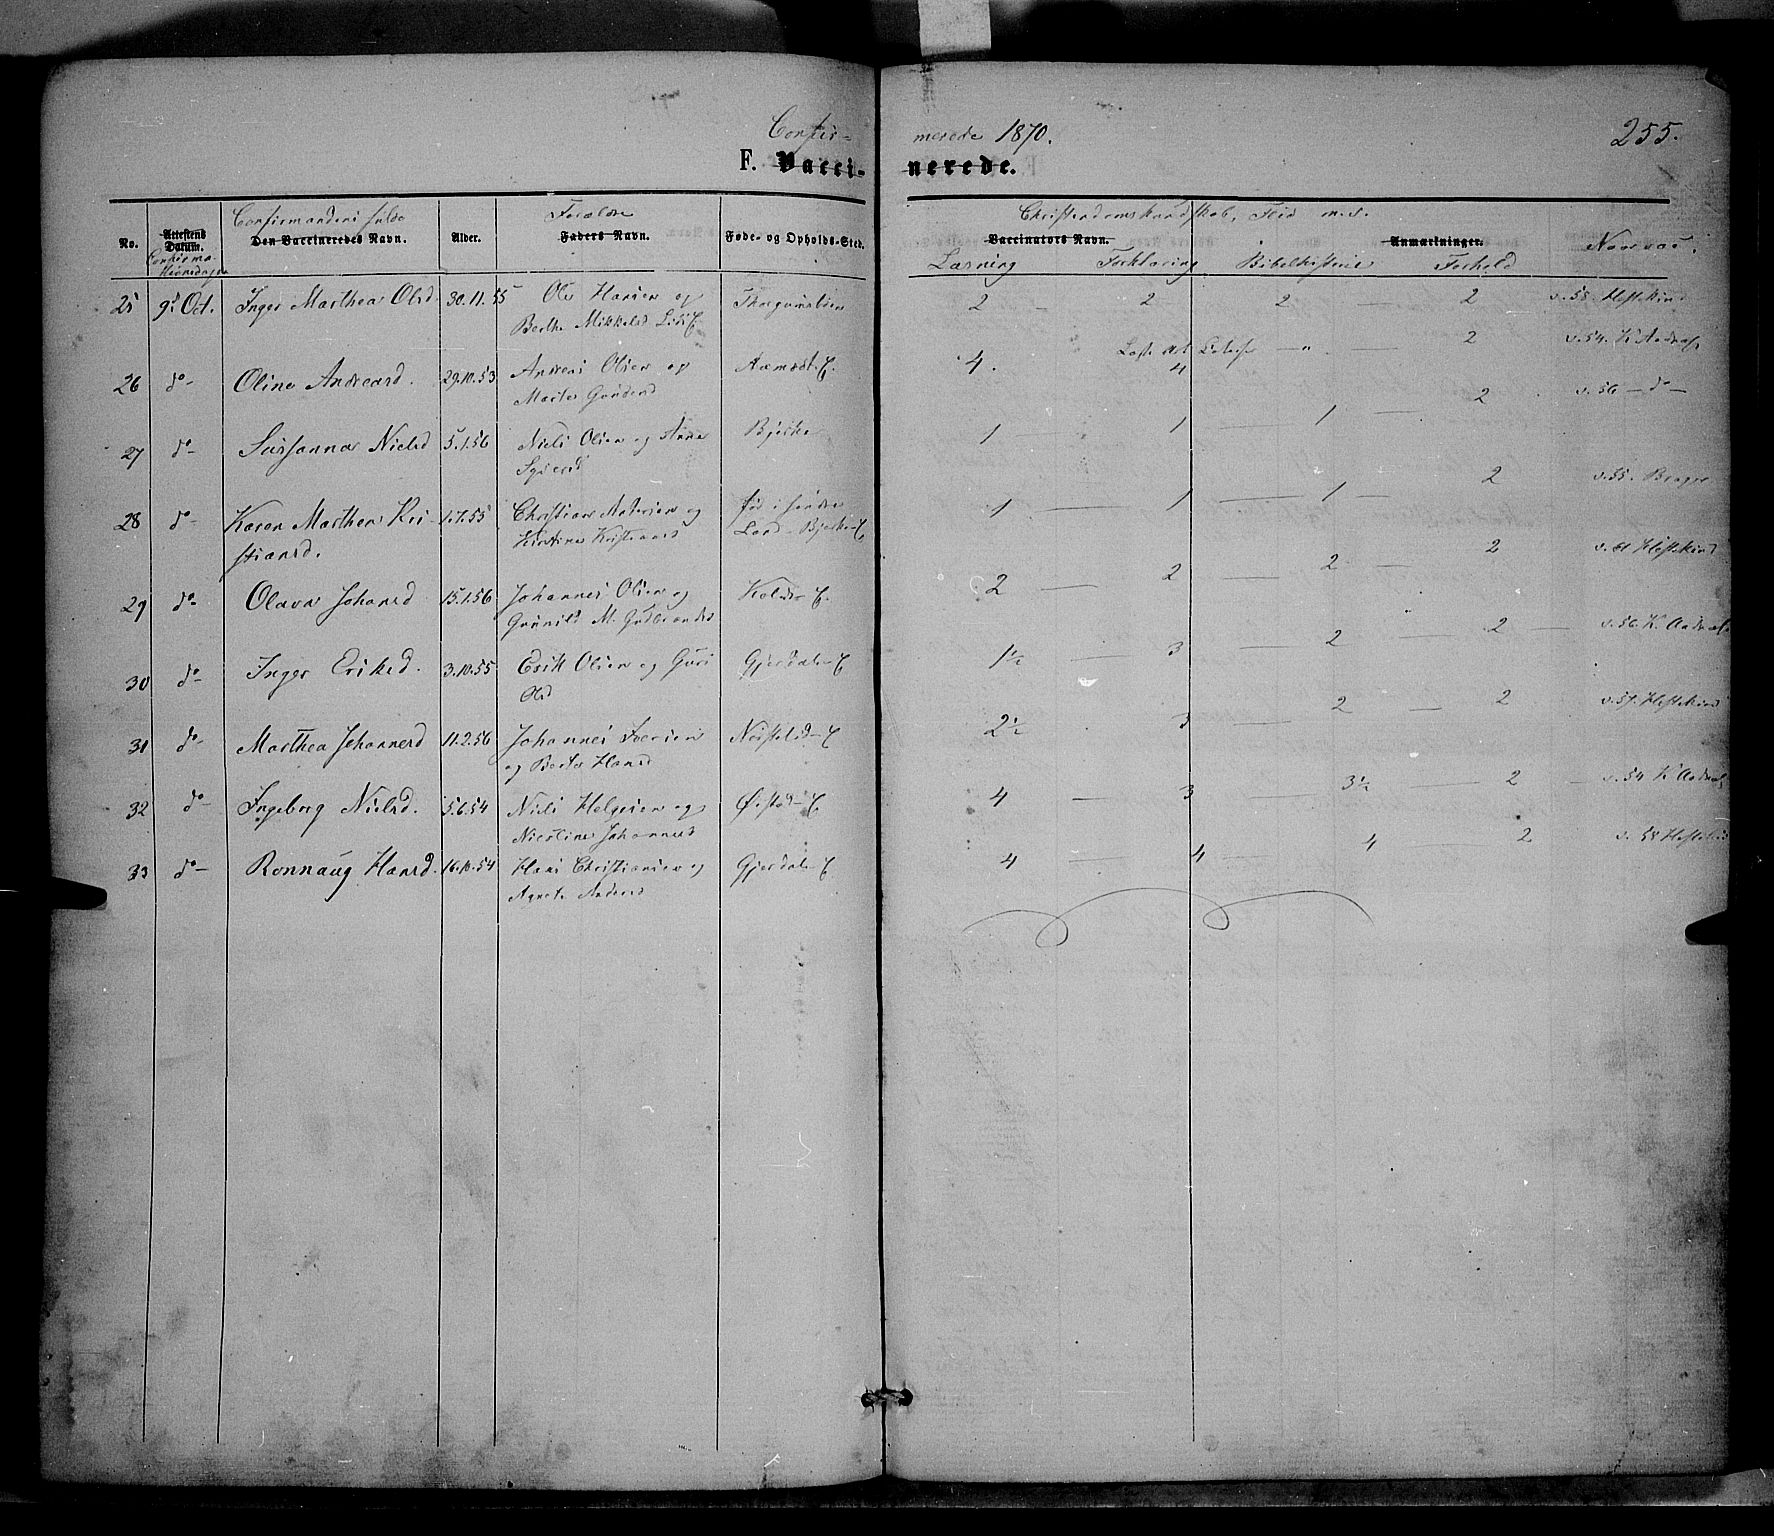 Confir- merede 1870. 255.
F. Vacci- nerede.
No. Attestens Datum. Confirmandens fulde Den Vaccineredes Navn. Alder. Forældre Faders Navn. Føde- og Opholds-Sted. Christendomskundskab, Flid m.s. Vaccinators Navn. Anmærkninger.
Confirma-
tionsdagen Læsning Forklaring Bibelhistorie Forhold
25 9d Oct. Inger Marthea Olsd 30.11.55 Ole Hansen og 2 - 2 2 - 2 v. 58. Hestekind
Berthe Mikkelsd
26 do- Oline Andreasd. 29.10.53 Andreas Olsen og 4. 4 - " - 2 v. 54.
Marte Gundersd
27 do- Susanna Nielsd 5.1.56 Niels Olsen og Anne Bjerke 1 - 1 - 1 - 2 v. 56 - do -
28 do- Karen Marthea Kri- 1.7.55 og født i søndre 1 - 1 - 1 - 2 v. 55.
stiansd. Land
29 do- Olava Johansd 15.1.56 Johannes Olsen og 2 - 2 - 2 - 2 v. 61 Hestekind
Gunnild M. Gudbrandsd
30 do- Inger Eriksd. 3.10.55 Erik Olsen og Guri Gjerdal 1½ - 3 - 2 - 2 - v. 56.
Olsd
31 do- Marthea Johannesd 11.2.56 Johannes Iversen 2½ 3 - 2 - 2 v. 57. Hestekind
og Berte Hansd
32 do- Ingeborg Nielsd. 5.6.54 Niels Helgesen og 4 - 3 3½ - 2 - v. 54
Nicoline Johannesd
33 do- Ronnaug Hansd. 16.10.54 Hans Christiansen og Gjerdal 4 - 4 - 4 - 2 v. 58 Hestekind
Agnete Andersd